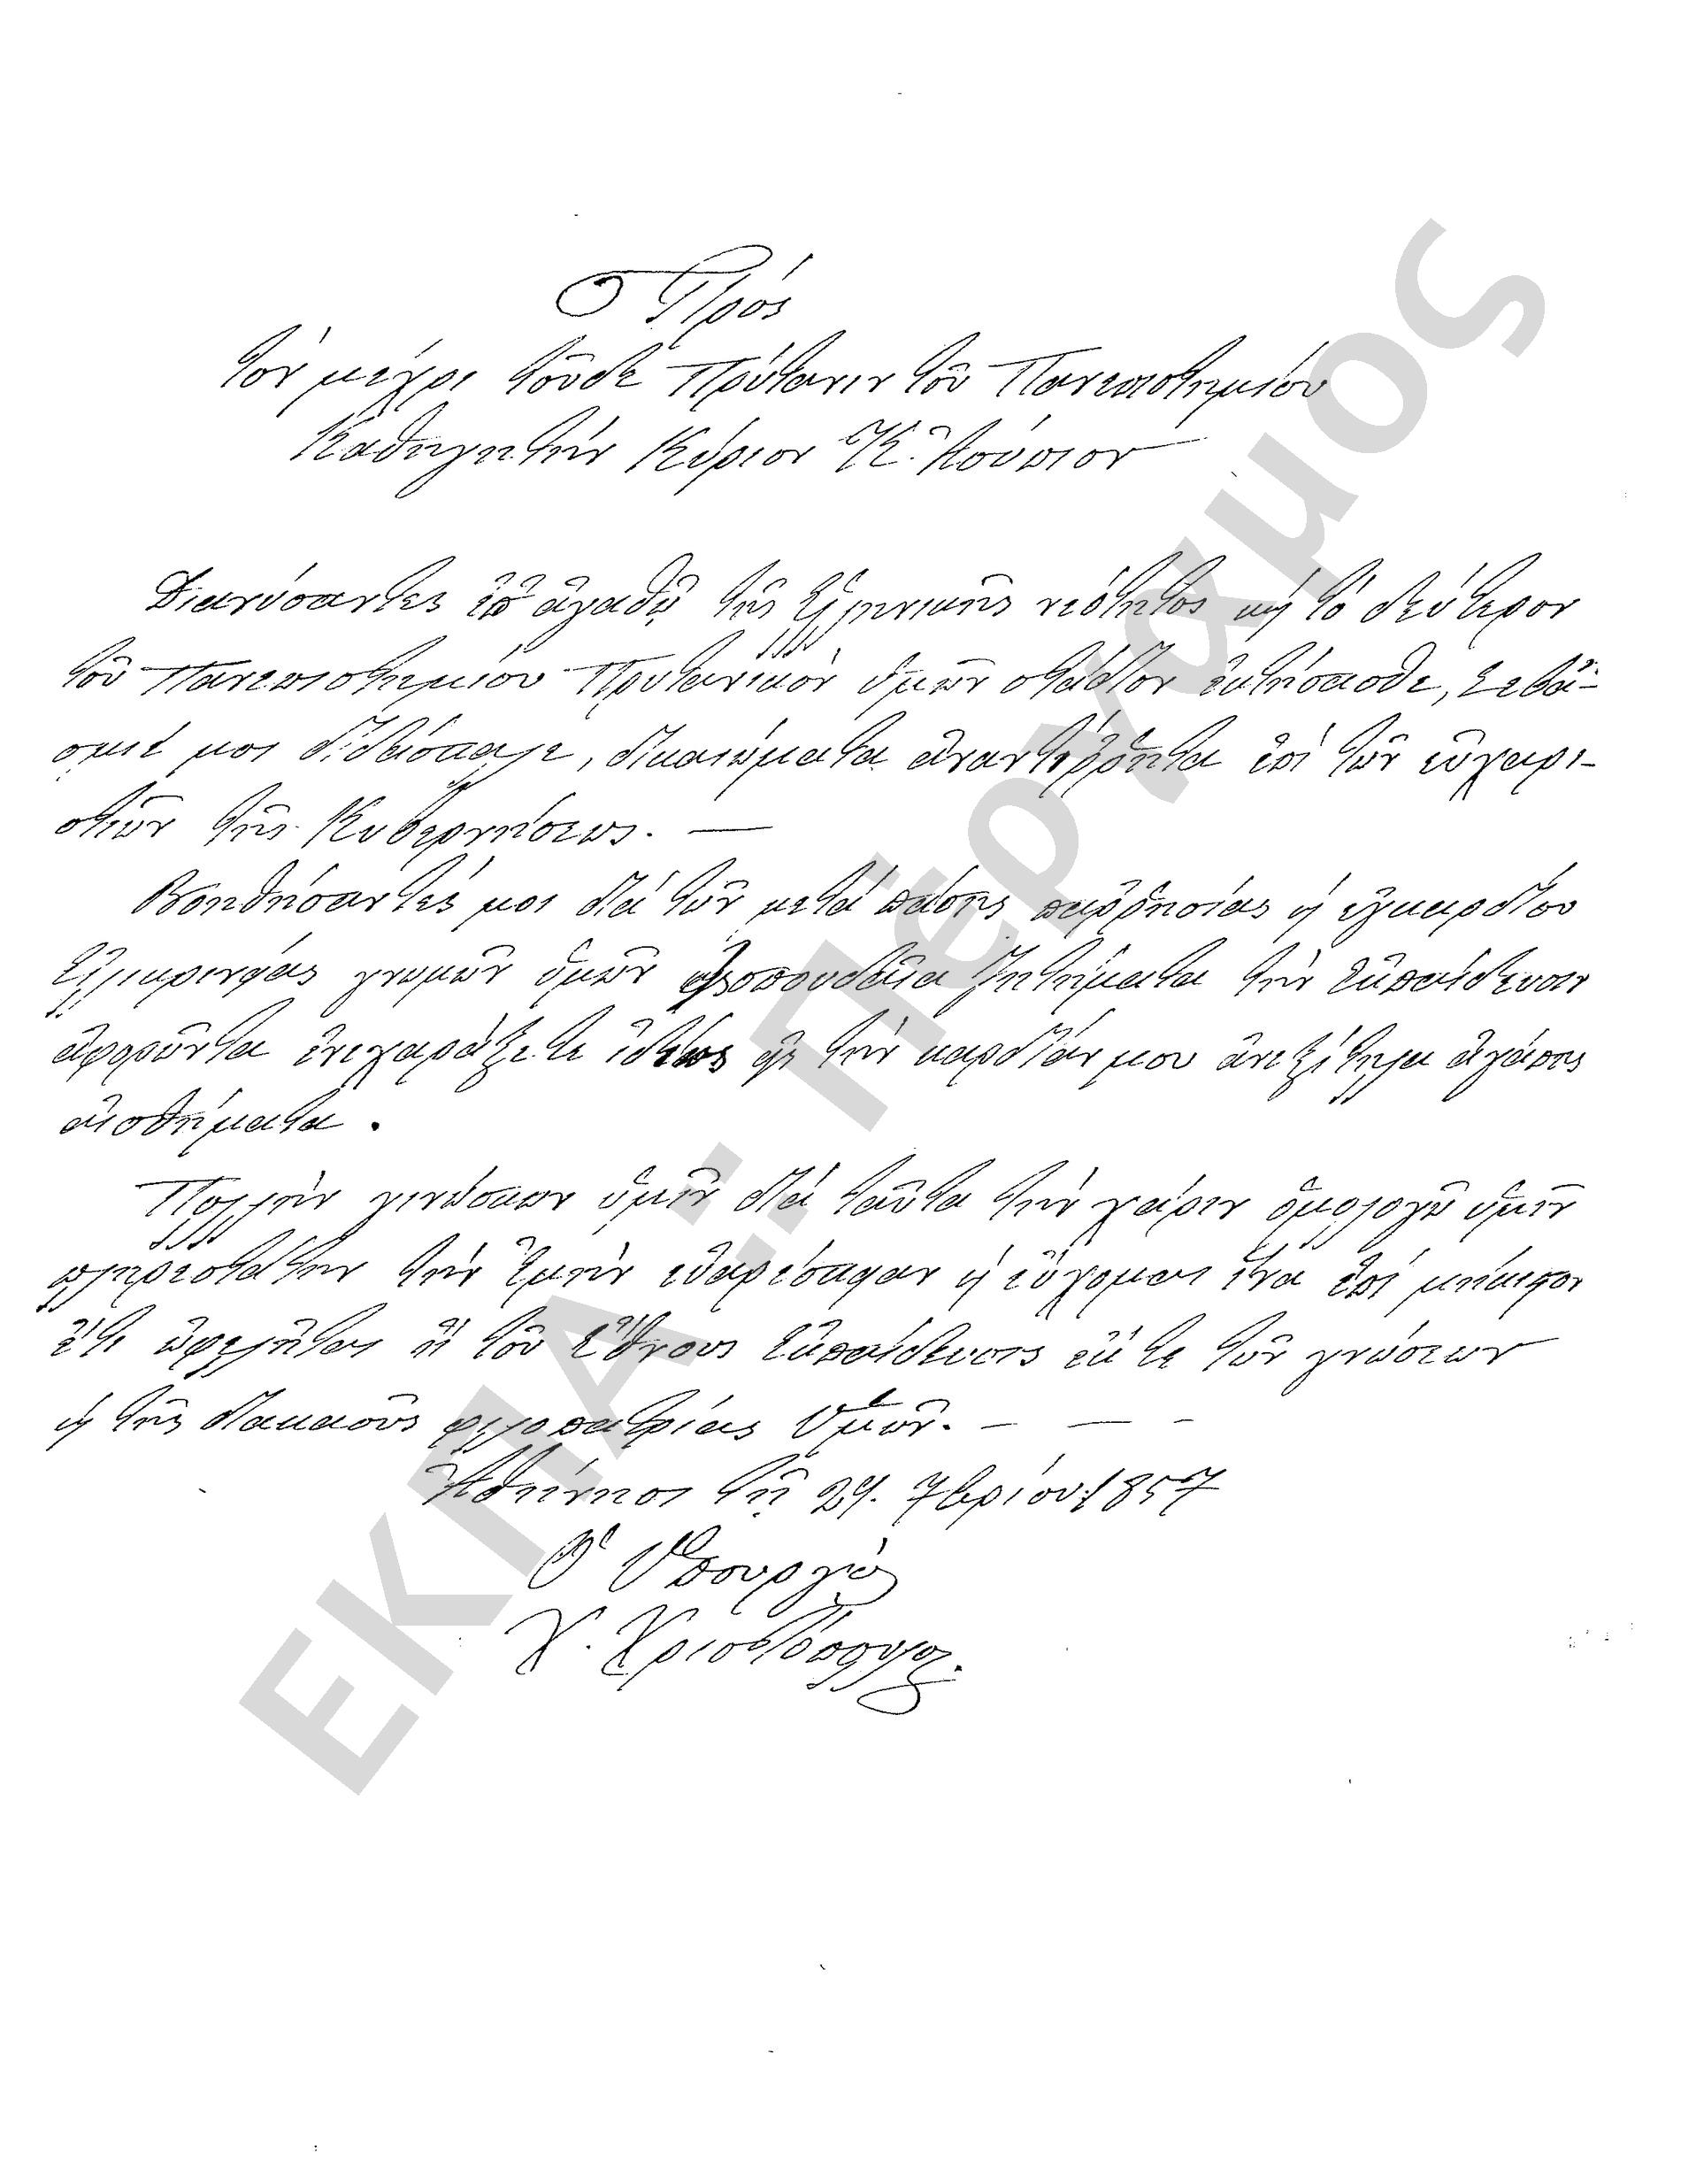 Πρὸς
τὸν μέχρι τοῦδε Πρύτανιν τοῦ Πανεπιστημίου
Καθηγητὴν Κύριον Κ. Ἀσώπιον
Διανύσαντες ἐπ' ἀγαθῷ τῆς Ἑλληνικῆς νεότητος καὶ τὸ δεύτερον
τοῦ Πανεπιστημίου Πρυτανικὸν ὑμῶν στάδιον ἐκτήσασθε, Σεβά-
σμιέ μοι διδάσκαλε, δικαιώματα ἀναντίῤῥητα ἐπὶ τῶν εὐχαρι-
στιῶν τῆς Κυβερνήσεως. —
Βοηθήσαντές μοι διὰ τῶν μετὰ πάσης παῤῥησίας καὶ ἐγκαρδίου
εἰλικρινείας γνωμῶν ὑμῶν σπουδαῖα ζητήματα τὴν ἐκπαίδευσιν
ἀφορῶντα ἐνεχαράξετε ἰδίως εἰς τὴν καρδίαν μου ἀνεξίτηλα ἀγάπης
αἰσθήματα.
Πολλὴν γινώσκων ὑμῖν διὰ ταῦτα τὴν χάριν ὁμολογῶ ὑμῖν
πληρεστάτην τὴν ἐμὴν εὐαρέσκειαν καὶ εὔχομαι ἵνα ἐπὶ μήκιστον
ἔτι ὠφελῆται ἡ τοῦ Ἔθνους ἐκπαίδευσις ἔκ τε τῶν γνώσεων
καὶ τῆς διακαοῦς φιλοπατρίας Ὑμῶν. — — -
Ἀθήνησι τῇ 29. 7βρίου 1857
Ὁ Ὑπουργὸς
Χ. Χριστόπουλος.
ΕΚΠΑ.: Πέργαμος